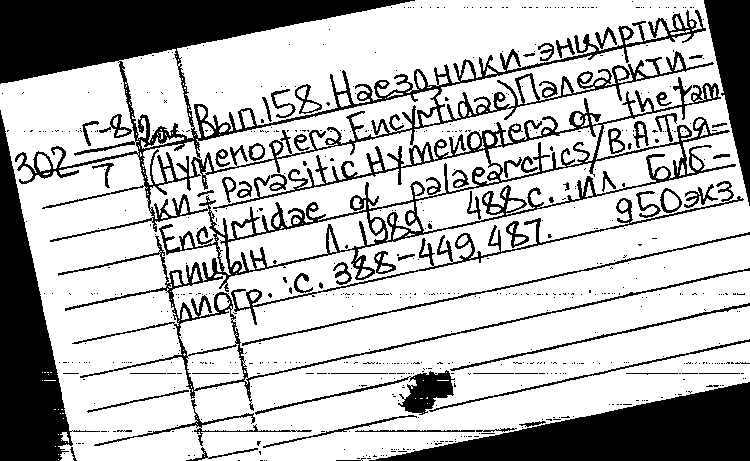 302 Г-8/7 Вып. 158. Наездники-энциртиды
(Hymenoptera, Encyrtidae) Палеаркти-
ки = Parasitic Hymenoptera of the fam.
Encyrtidae of palaearctics / В.А. Тря=
пицын. Л., 1989. 488с. : ил. Биб-
лиогр. : с. 388-449, 487. 950экз.